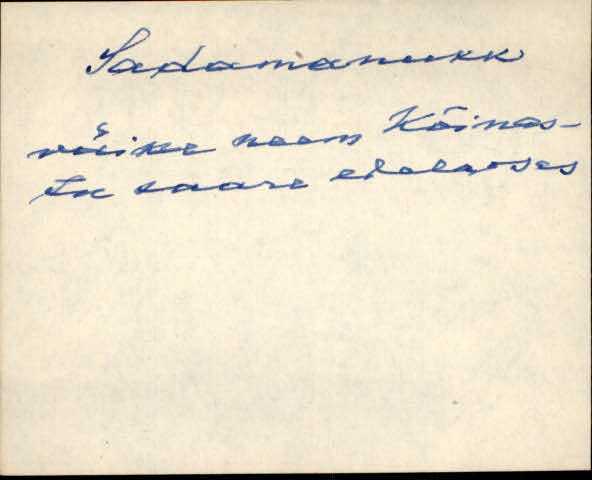 Sadamanukk
väike neem Kõinas-
tu saare edelaosas